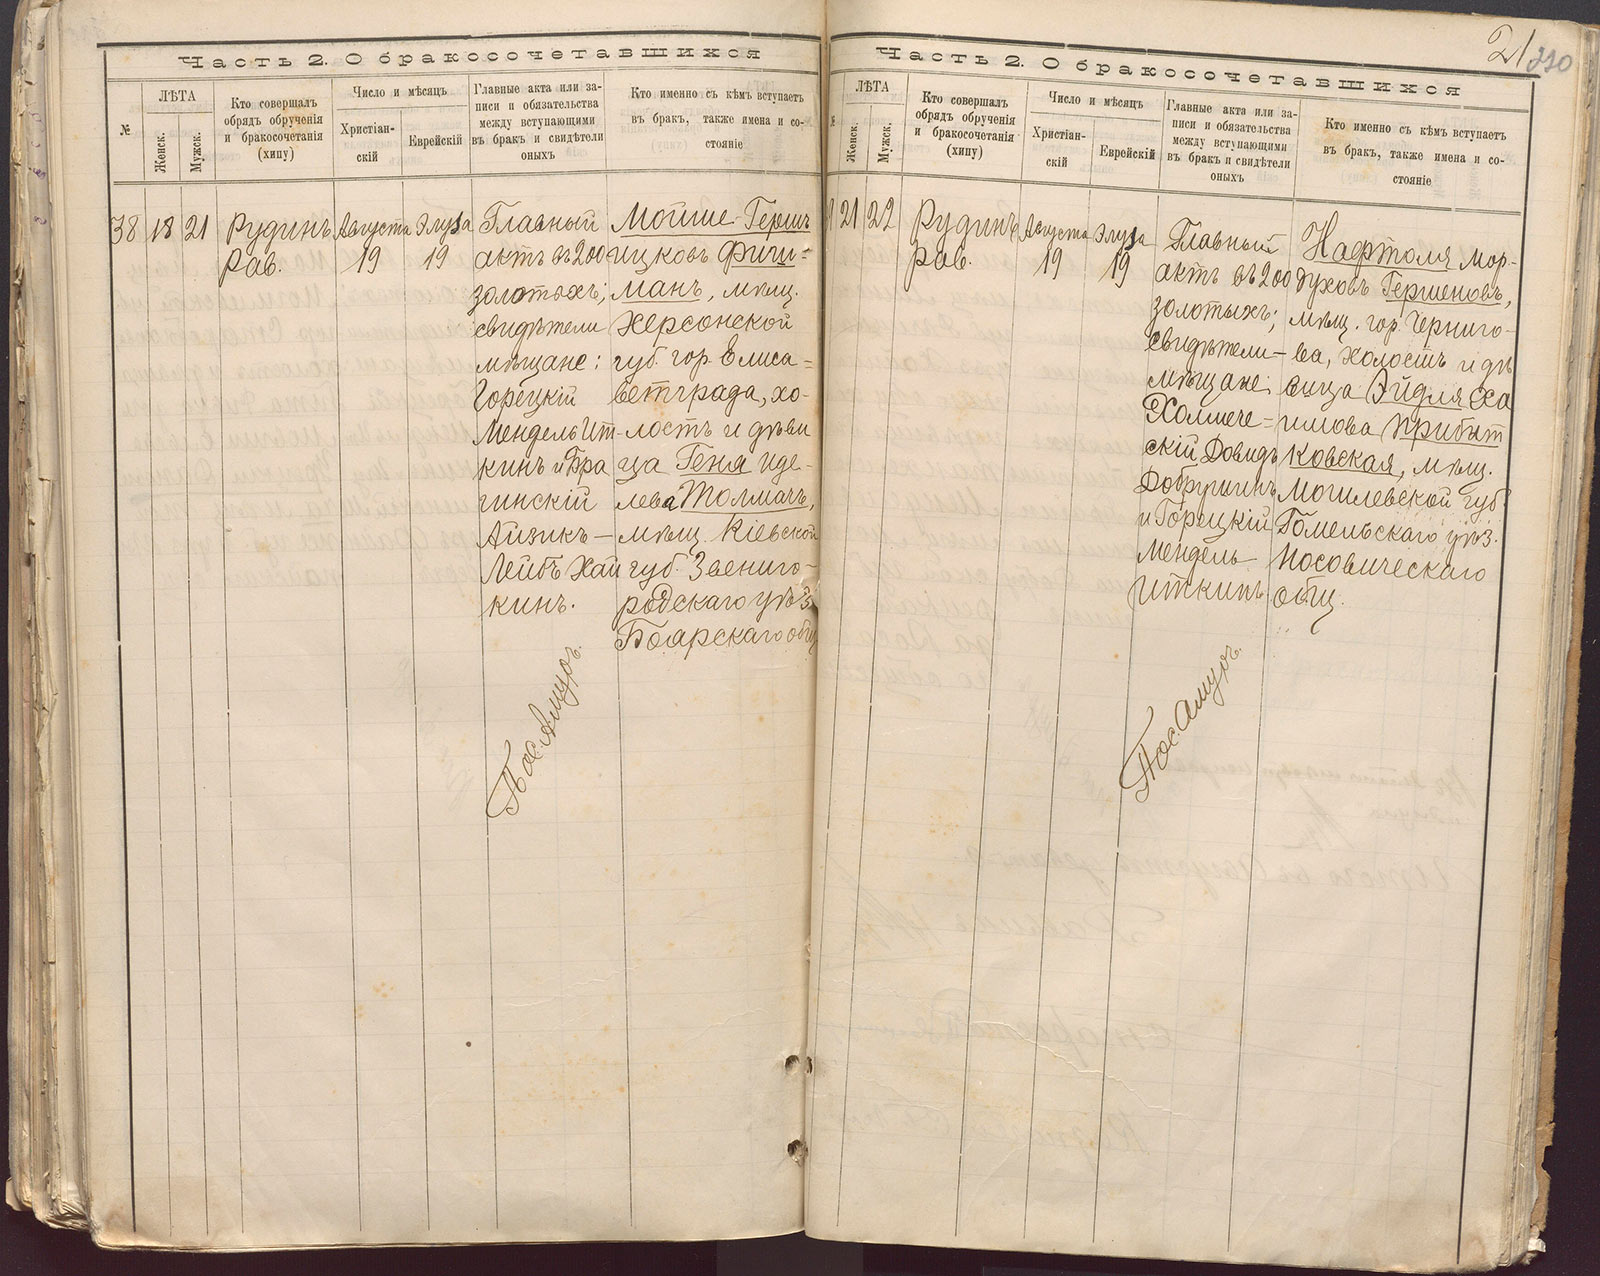 Часть 2. О бракосочетавшихся
№
ЛѢТА
Женск.
Мужск.
Кто совершалъ
обрядъ обрученія
и бракосочетанія
(хипу)
Число и мѣсяцъ
Христіан-
скій
Еврейскій
Главные акта или за-
писи и обязательства
между вступающими
въ бракъ и свидѣтели
оныхъ
Кто именно съ кѣмъ вступаетъ
въ бракъ, также имена и со-
стояніе
38
18
21
Рудинъ
Рав.
Августа
19
Элула
19
Главный
актъ въ 200
золотыхъ;
свидѣтели
мѣщане:
Горецкій
Мендель Ит-
кинъ и Бра
гинскій
Айзикъ –
Лейбъ Хай
кинъ.
Пос.
Мойше-Гершъ
Ицковъ Фичи=
манъ, мѣщ.
Херсонской
губ. гор. Елиса=
ветграда, хо-
лостъ и дѣви
ца Геня Иде-
лева Толмачъ,
мѣщ. Кіевской
губ. Звениго-
родскаго уѣз.
Боярскаго общ
21
210
Часть 2. О бракосочетавшихся
ЛѢТА
Женск.
Мужск.
Кто совершалъ
обрядъ обрученія
и бракосочетанія
(хипу)
Число и мѣсяцъ
Христіан-
скій
Еврейскій
Главные акта или за-
писи и обязательства
между вступающими
въ бракъ и свидѣтели
оныхъ
Кто именно съ кѣмъ вступаетъ
въ бракъ, также имена и со-
стояніе
21
22
Рудинъ
Рав.
Августа
19
Элула
19
Главный
актъ въ 200
золотыхъ;
свидѣтели –
мѣщане:
Холмече=
скій Довидъ
Добрушинъ
и Горецкій
Мендель –
Иткинъ
Пос.
Нафтоля Мор-
духовъ Гершеновъ,
мѣщ. гор. Черниго-
ва, холостъ и дѣ
вица Эйдля Ха
имова Прибыт
ковская, мѣщ.
Могилевской губ.
Гомельскаго уѣз.
Носовическаго
общ.